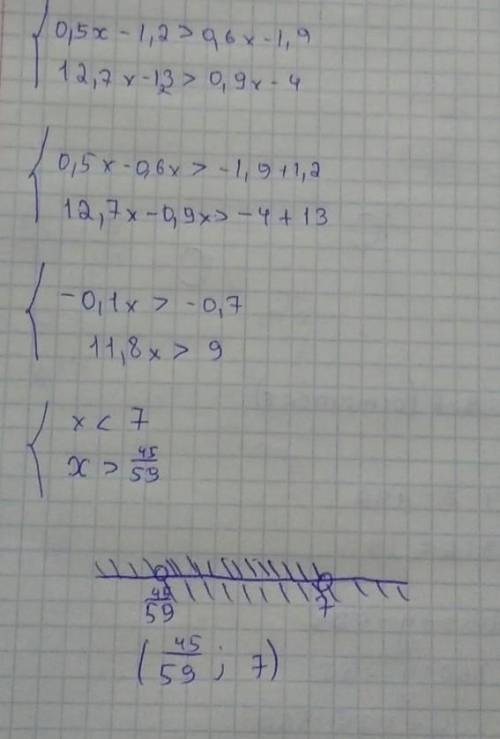 0,5x - 1,2 > 0,6x - 1,9
12,7x - 13 > 0,9x - 4
0,5x - 0,6x > -1,9 + 1,2
12,7x - 0,9x > -4 + 13
-0,1x > -0,7
11,8x > 9
x < 7
x > 45/59
45/59 7
(45/59; 7)